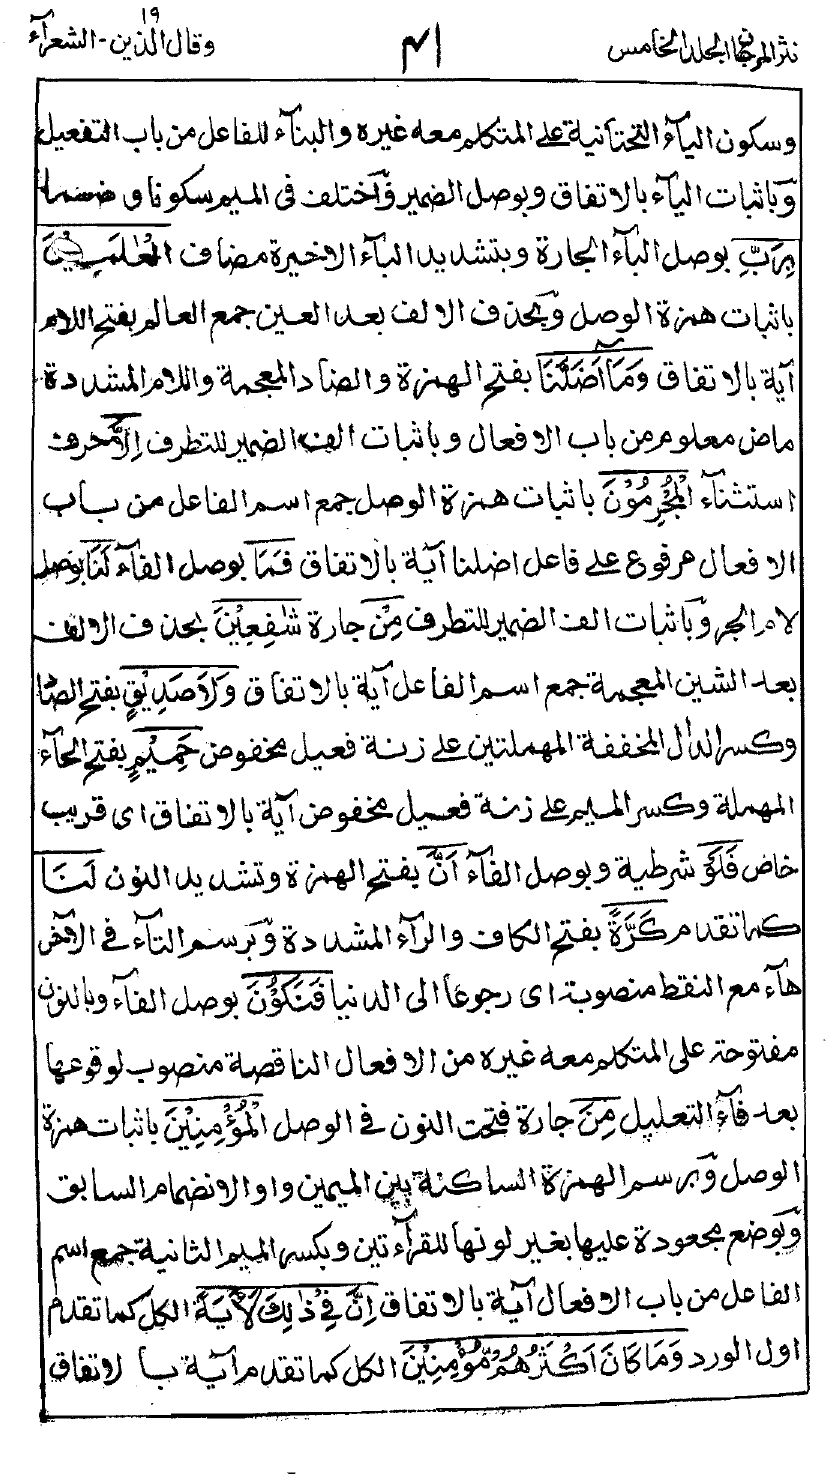 نثر المرجان المجلد الخامس
٤١
وقال الذين ١٩ - الشعرآء
وسكون اليآء التحتانية على المتكلم معه غيره والبنآء للفاعل من باب التفعيل
وَباثبات اليآء بالاتفاق وبوصل الضمير وَاختلف فى الميم سكونا و ضمها
بِرَبِّ بوصل البآء الجارة وبتشديد البآء الاخيرة مضاف الْعٰلَمِيْنَ
باثبات همزة الوصل وَبحذف الالف بعد العين جمع العالم بفتح اللام
آية بالاتفاق وَمَآ اَضَلَّنَآ بفتح الهمزة والضاد المعجمة واللام المشددة
ماض معلوم من باب الافعال وباثبات الف الضمير للتطرف اِلَّا حرف
استثنآء الْمُجْرِمُوْنَ باثبات همزة الوصل جمع اسم الفاعل من باب
الافعال مرفوع على فاعل اضلنا آية بالاتفاق فَمَا بوصل الفآء لَنَا بوصل
لام الجر وَباثبات الف الضمير للتطرف مِنْ جارة شٰفِعِيْنَ بحذف الالف
بعد الشين المعجمة جمع اسم الفاعل آية بالاتفاق وَلَا صَدِيْقٍ بفتح الصاد
وكسر الدال المخففة المهملتين على زنة فعيل مخفوض حَمِيْمٍ بفتح الحآء
المهملة وكسر الميم على زنة فعيل مخفوض آية بالاتفاق اى قريب
خاص فَلَوْ شرطية وبوصل الفآء اَنَّ بفتح الهمزة وتشديد النون لَنَا
كما تقدم كَرَّةً بفتح الكاف والرآء المشددة وَبرسم التآء فى الآخر
هآء مع النقط منصوبة اى رجوعا الى الدنيا فَنَكُوْنَ بوصل الفآء وبالنون
مفتوحة على المتكلم معه غيره من الافعال الناقصة منصوب لوقوعها
بعد فآء التعليل مِنَ جارة فتحت النون فى الوصل الْمُؤْمِنِيْنَ باثبات همزة
الوصل وَبرسم الهمزة الساكنة بين الميمين واوا لانضمام السابق
وَبوضع مجعودة عليها بغير لونها للقرآءتين وبكسر الميم الثانية جمع اسم
الفاعل من باب الافعال آية بالاتفاق اِنَّ فِيْ ذٰلِكَ لَاٰيَةً الكل كما تقدم
اول الورد وَمَا كَانَ اَكْثَرُهُمْ مُّؤْمِنِيْنَ الكل كما تقدم آية بالاتفاق